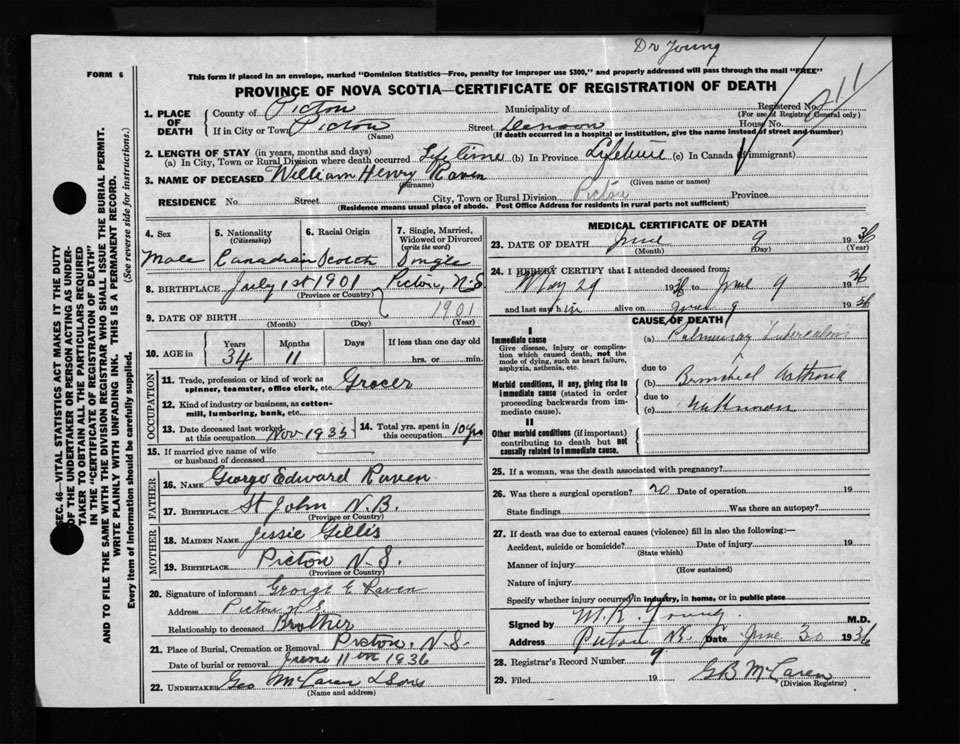 Dr Young
FORM 6
This form if placed in an envelope, marked "Dominion Statistics—Free, penalty for improper use $300," and properly addressed will pass through the mail "FREE"
PROVINCE OF NOVA SCOTIA—CERTIFICATE OF REGISTRATION OF DEATH
1. PLACE OF DEATH
County of Picton
Municipality of
Registered No. 211
(For use of Registrar General only)
If in City or Town Picton
(Name)
Street Denoon
House No.
(If death occurred in a hospital or institution, give the name instead of street and number)
2. LENGTH OF STAY (in years, months and days)
(a) In City, Town or Rural Division where death occurred Life time (b) In Province Lifetime (c) In Canada (if immigrant)
3. NAME OF DECEASED William Henry Raven
(Surname) (Given name or names)
RESIDENCE No. Street City, Town or Rural Division Picton Province
(Residence means usual place of abode. Post Office Address for residents in rural parts not sufficient)
SEC. 46—VITAL STATISTICS ACT MAKES IT THE DUTY
OF THE UNDERTAKER OR PERSON ACTING AS UNDER-
TAKER TO OBTAIN ALL THE PARTICULARS REQUIRED
IN THE "CERTIFICATE OF REGISTRATION OF DEATH"
AND TO FILE THE SAME WITH THE DIVISION REGISTRAR WHO SHALL ISSUE THE BURIAL PERMIT.
WRITE PLAINLY WITH UNFADING INK. THIS IS A PERMANENT RECORD.
Every item of information should be carefully supplied. (See reverse side for instructions.)
4. Sex
Male
5. Nationality
(Citizenship)
Canadian
6. Racial Origin
Scotch
7. Single, Married,
Widowed or Divorced
(write the word)
Single
8. BIRTHPLACE July 1st 1901 Picton, N.S
(Province or Country)
9. DATE OF BIRTH 1901
(Month) (Day) (Year)
10. AGE in
Years Months Days If less than one day old
34 11 hrs. or min.
OCCUPATION
11. Trade, profession or kind of work as
spinner, teamster, office clerk, etc. Grocer
12. Kind of industry or business, as cotton-
mill, lumbering, bank, etc.
13. Date deceased last worked
at this occupation Nov 1935
14. Total yrs. spent in
this occupation 10 yrs
15. If married give name of wife
or husband of deceased
FATHER
16. NAME George Edward Raven
17. BIRTHPLACE St John N.B.
(Province or Country)
MOTHER
18. MAIDEN NAME Jessie Gillis
19. BIRTHPLACE Picton N.S.
(Province or Country)
20. Signature of informant George E Raven
Address Picton N.S.
Relationship to deceased Brother
21. Place of Burial, Cremation or Removal Picton, N.S.
Date of burial or removal June 11th 1936
22. UNDERTAKER Geo McLaren & Sons
(Name and address)
MEDICAL CERTIFICATE OF DEATH
23. DATE OF DEATH June 9 1936
(Month) (Day) (Year)
24. I HEREBY CERTIFY that I attended deceased from:
May 29 1936 to June 9 1936
and last saw him alive on June 9 1936
CAUSE OF DEATH
I
Immediate cause
Give disease, injury or complica-
tion which caused death, not the
mode of dying, such as heart failure,
asphyxia, asthenia, etc.
(a) Pulmonary Tuberculosis
due to
Morbid conditions, if any, giving rise to
immediate cause (stated in order
proceeding backwards from im-
mediate cause).
(b) Bronchial Asthma
due to
(c) unknown
II
Other morbid conditions (if important)
contributing to death but not
causally related to immediate cause.
25. If a woman, was the death associated with pregnancy?
26. Was there a surgical operation? no Date of operation 19
State findings Was there an autopsy?
27. If death was due to external causes (violence) fill in also the following:—
Accident, suicide or homicide? Date of injury 19
(State which)
Manner of injury
(How sustained)
Nature of injury
Specify whether injury occurred in industry, in home, or in public place
Signed by M.R. Young M.D.
Address Picton N.S. Date June 30 1936
28. Registrar's Record Number 9
29. Filed 19 GB McLaren
(Division Registrar)